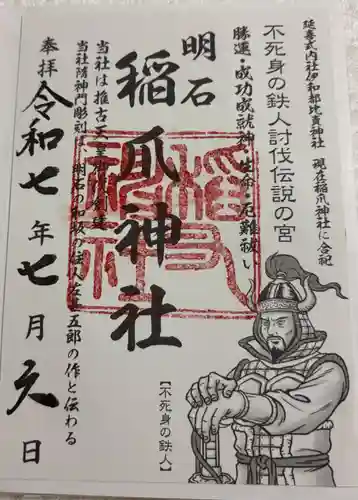 延喜式内社伊和都比賣神社 現在稲爪神社に合祀
不死身の鉄人討伐伝説の宮
勝運・成功成就神・生命・厄難祓い
明石
稲爪神社
当社は推古天皇
当社随神門彫刻は 明石の
五郎の作と伝わる
奉拝
令和七年七月六日
【不死身の鉄人】